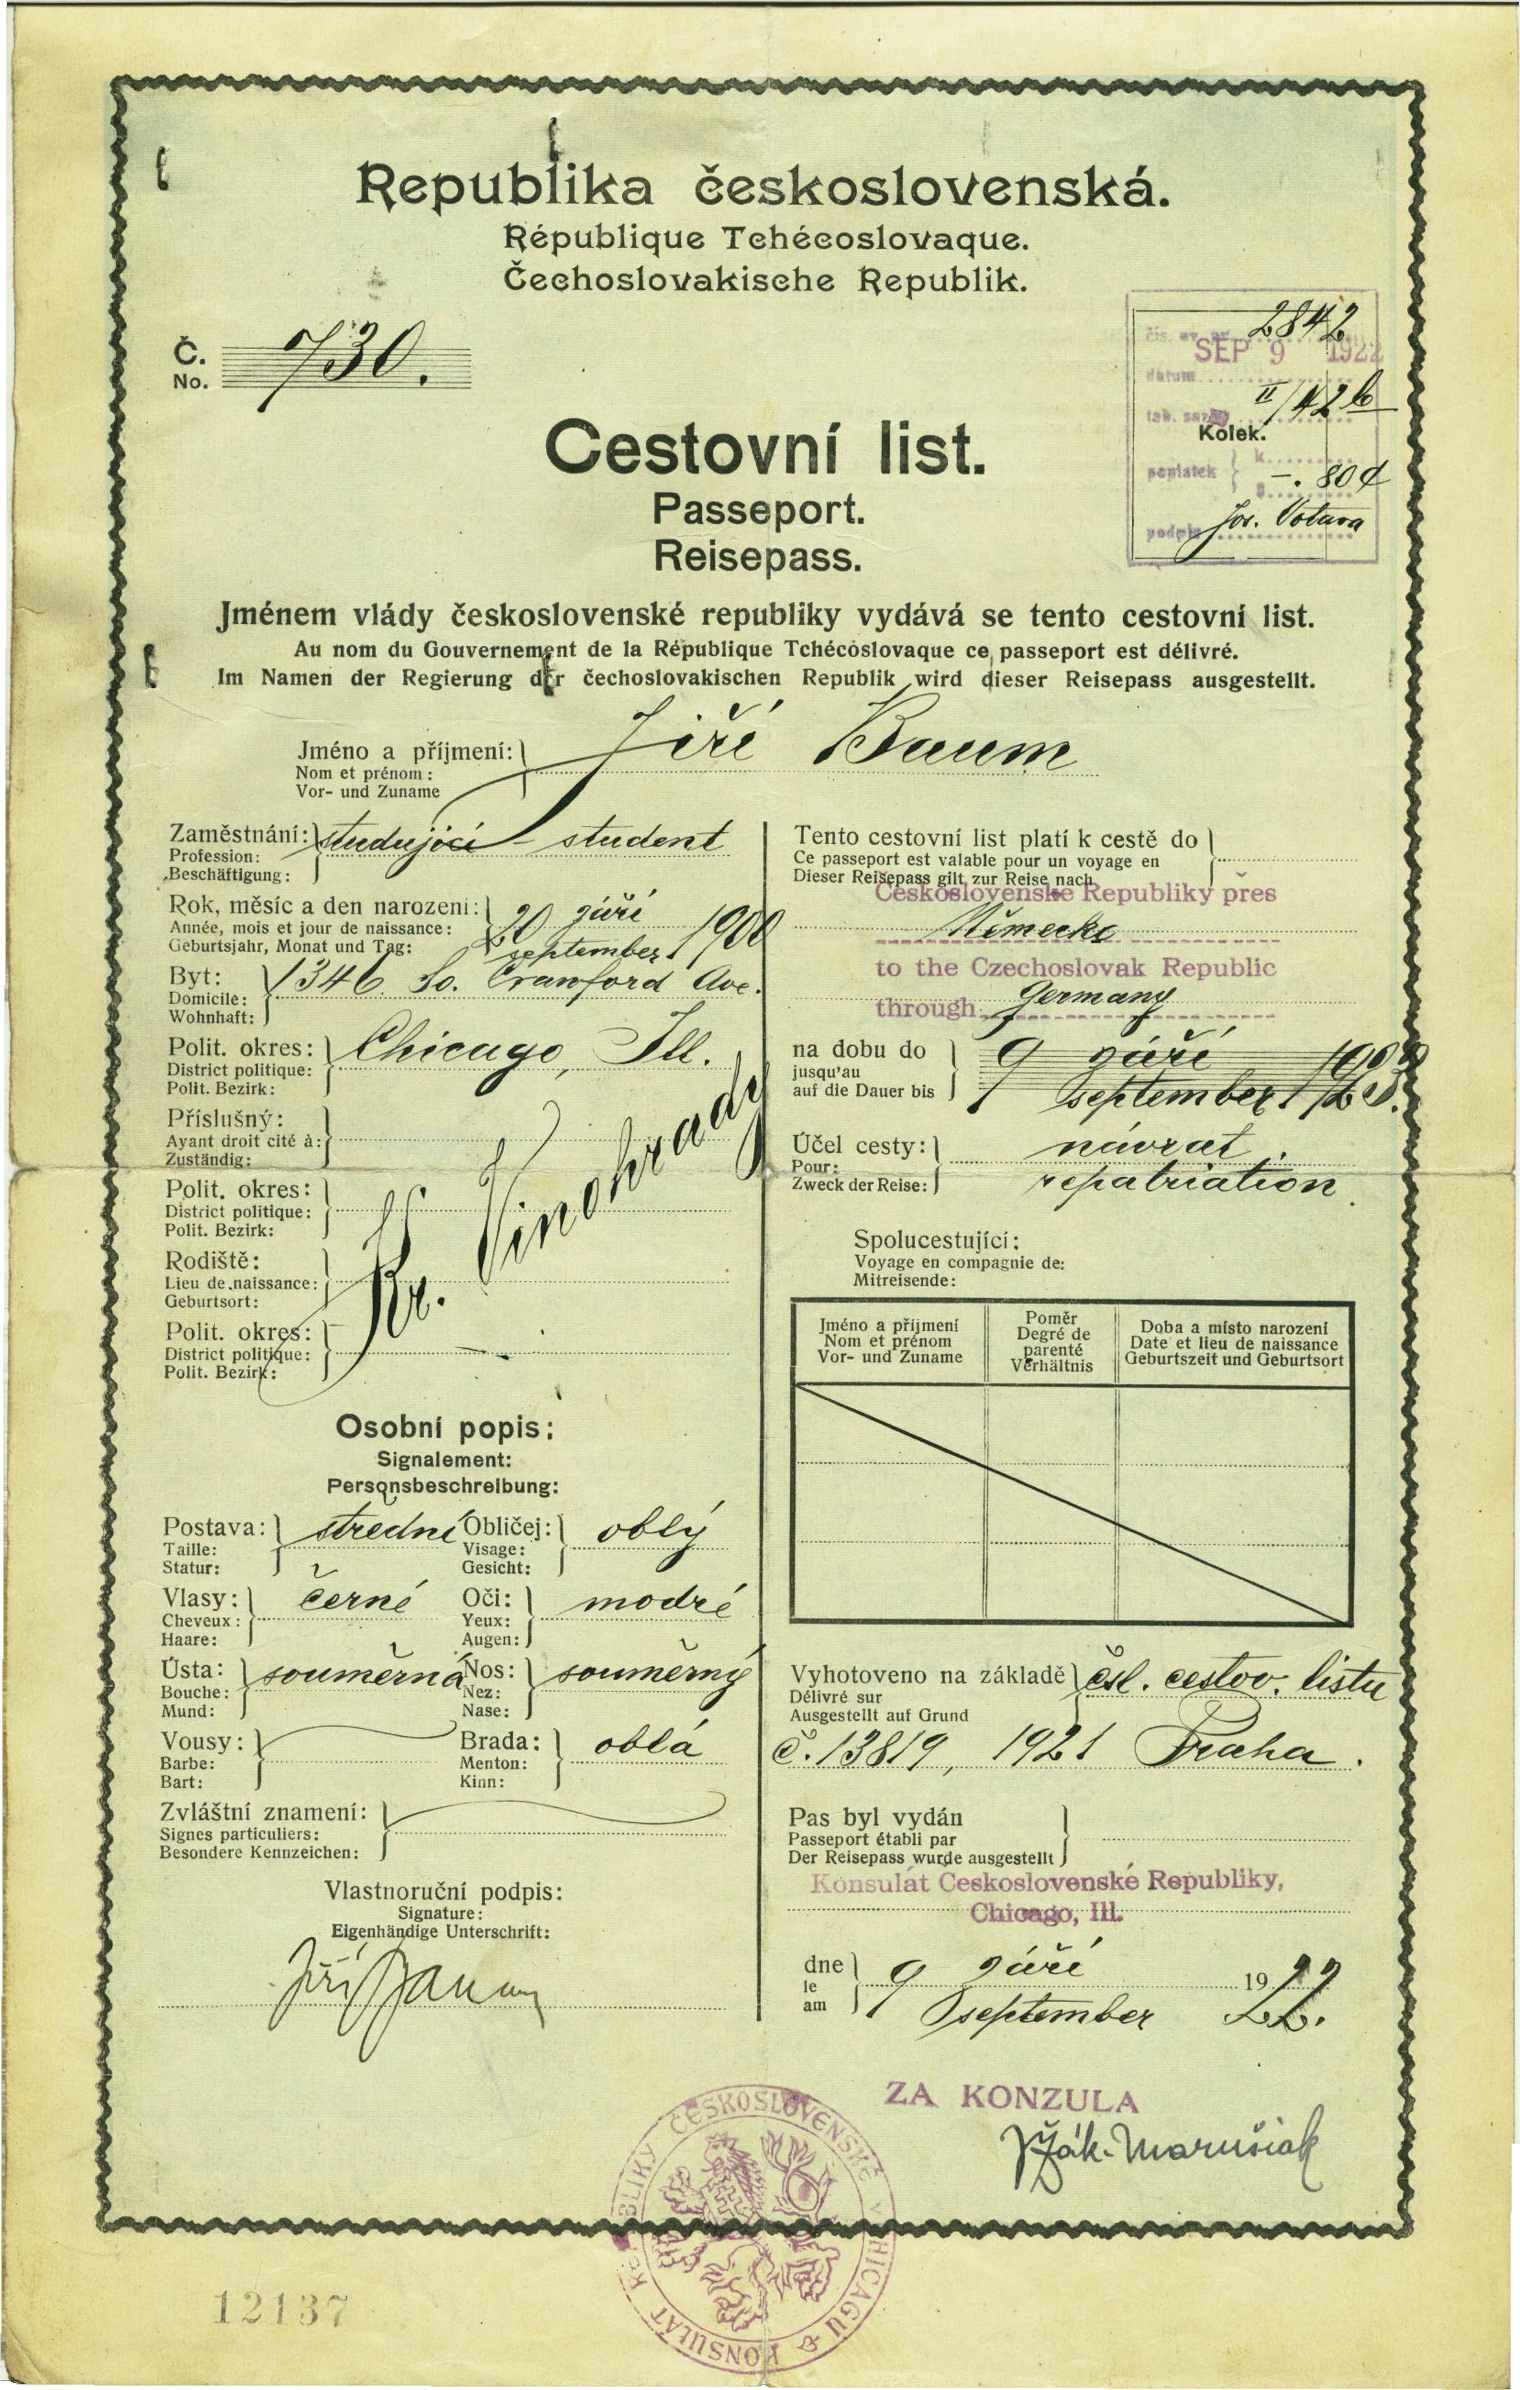 Republika československá.
République Tchécoslovaque.
Čechoslovakische Republik.
Č.
No.
730.
čís.
2842
SEP 9 1922
datum
II/42b
Kolek.
poplatek
k
-. 80¢
podpis
Jos. Votava
Cestovní list.
Passeport.
Reisepass.
Jménem vlády československé republiky vydává se tento cestovní list.
Au nom du Gouvernement de la République Tchécoslovaque ce passeport est délivré.
Im Namen der Regierung der čechoslovakischen Republik wird dieser Reisepass ausgestellt.
Jméno a příjmení:
Nom et prénom:
Vor- und Zuname
Jiří Baum
Zaměstnání:
Profession:
Beschäftigung:
studující - student
Rok, měsíc a den narození:
Année, mois et jour de naissance:
Geburtsjahr, Monat und Tag:
20 září 1900
september
Byt:
Domicile:
Wohnhaft:
1346 So. Crawford Ave.
Polit. okres:
District politique:
Polit. Bezirk:
Chicago, Ill.
Příslušný:
Ayant droit cité à:
Zuständig:
Polit. okres:
District politique:
Polit. Bezirk:
Rodiště:
Lieu de naissance:
Geburtsort:
Polit. okres:
District politique:
Polit. Bezirk:
Kr. Vinohrady
Osobní popis:
Signalement:
Personsbeschreibung:
Postava:
Taille:
Statur:
střední
Obličej:
Visage:
Gesicht:
oblý
Vlasy:
Cheveux:
Haare:
černé
Oči:
Yeux:
Augen:
modré
Ústa:
Bouche:
Mund:
souměrná
Nos:
Nez:
Nase:
souměrný
Vousy:
Barbe:
Bart:
Brada:
Menton:
Kinn:
oblá
Zvláštní znamení:
Signes particuliers:
Besondere Kennzeichen:
Vlastnoruční podpis:
Signature:
Eigenhändige Unterschrift:
Jiří Baum
Tento cestovní list platí k cestě do
Ce passeport est valable pour un voyage en
Dieser Reisepass gilt zur Reise nach
Československé Republiky přes
Německo
to the Czechoslovak Republic
through Germany
na dobu do
jusqu'au
auf die Dauer bis
9 září
september
Účel cesty:
Pour:
Zweck der Reise:
návrat.
repatriation.
Spolucestující:
Voyage en compagnie de:
Mitreisende:
Jméno a příjmení
Nom et prénom
Vor- und Zuname
Poměr
Degré de
parenté
Verhältnis
Doba a místo narození
Date et lieu de naissance
Geburtszeit und Geburtsort
Vyhotoveno na základě
Délivré sur
Ausgestellt auf Grund
čsl. cestov. listu
č. 13819, 1921 Praha.
Pas byl vydán
Passeport établi par
Der Reisepass wurde ausgestellt
Konsulát Československé Republiky,
Chicago, Ill.
dne
le
am
9 září 1922
september 22.
ZA KONZULA
Žák-Marušiak
KONSULÁT REPUBLIKY ČESKOSLOVENSKÉ V CHICAGU
12137